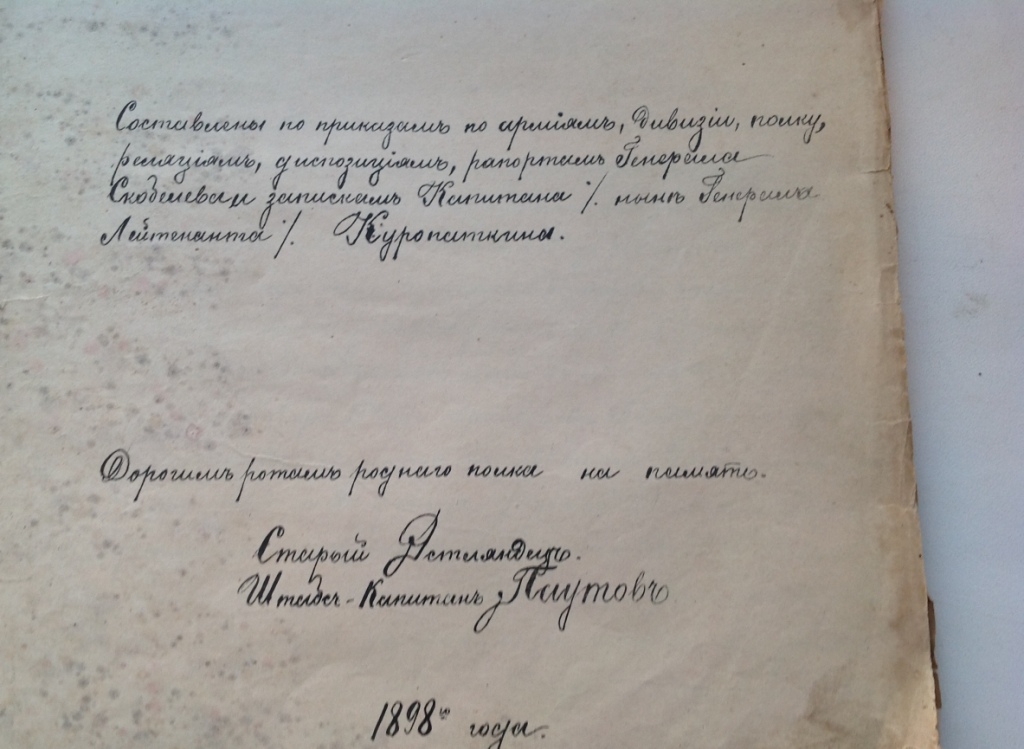 Составлены по приказамъ по арміямъ, дивизіи, полку,
реляціямъ, диспозиціямъ, рапортамъ Генерала
Скобелева и запискамъ Капитана ./. нынѣ Генералъ
Лейтенанта ./. Куропаткина.
Дорогимъ ротамъ роднаго полка на память.
Старый Эстляндецъ.
Штабсъ-Капитанъ Паутовъ
1898го года.